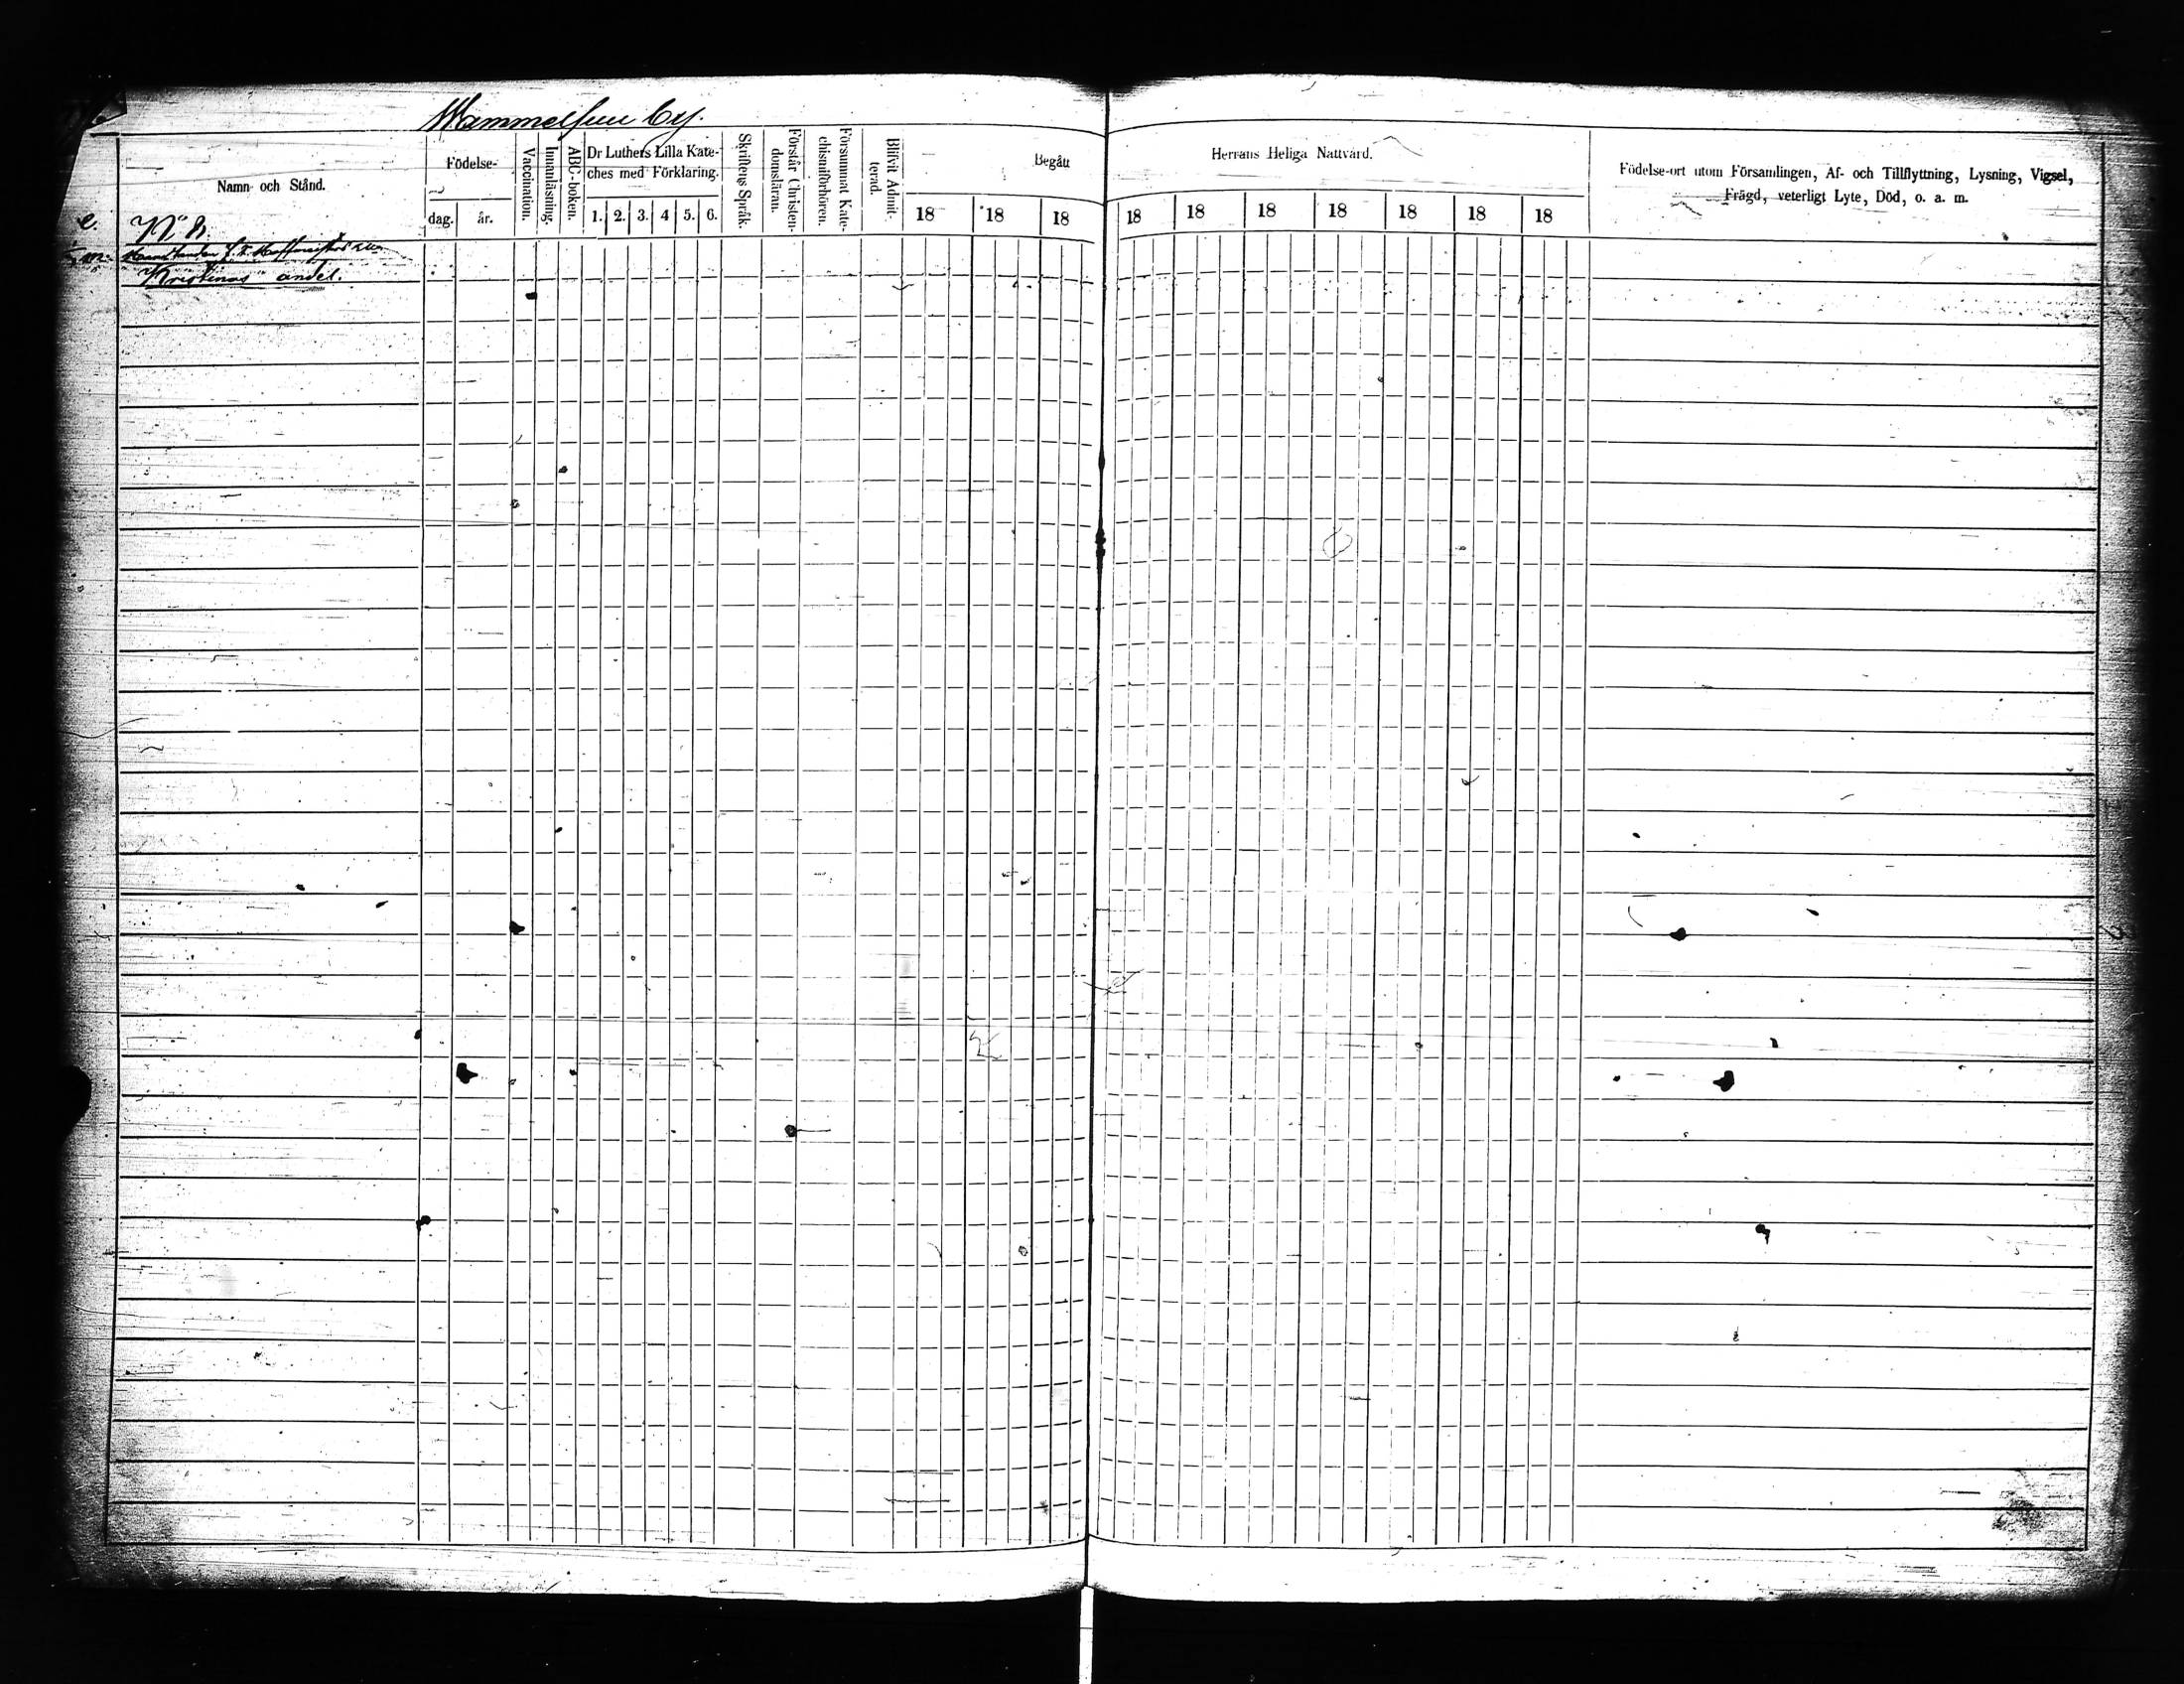 Wammelsuu by.
Namn och Stånd.
Födelse-
dag.
år.
Vaccination.
Innanläsning.
ABC-boken.
Dr Luthers Lilla Kate-
ches med Förklaring.
1. 2. 3. 4 5. 6.
Skriftens Språk.
Förstår Christen-
domsläran.
Försummat Kate-
chismiförhören.
Blifvit Admit-
terad.
Begått
18 18 18
Herrans Heliga Nattvard.
18 18 18 18 18 18 18
Födelse-ort utom Församlingen, Af- och Tillflyttning, Lysning, Vigsel,
Frägd, veterligt Lyte, Död, o. a. m.
e.
N 8.
m.
Kristinas andel.